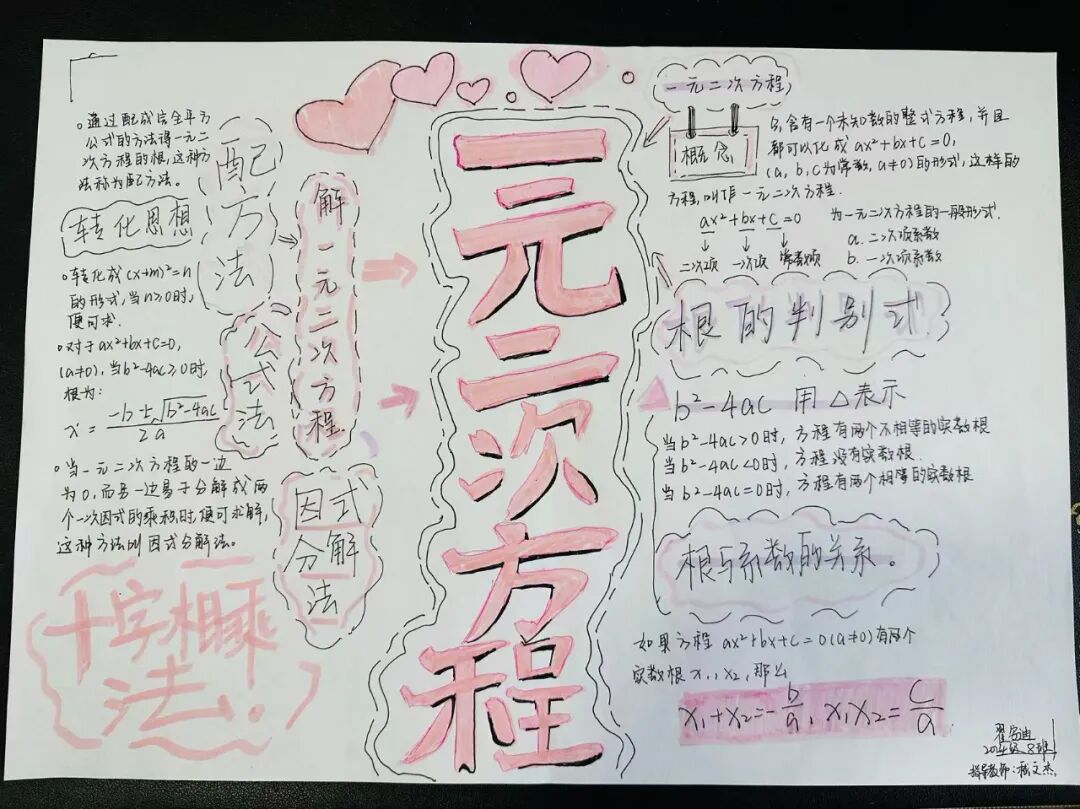 一元二次方程
通过配成完全平方
公式的方法得一元二
次方程的根，这种方
法称为配方法。
配方法
转化思想
转化成(x+m)²=n
的形式，当n≥0时，
便可求.
公式法
对于ax²+bx+c=0,
(a≠0)，当b²-4ac≥0时，
根为：
x = (-b±√(b²-4ac))/2a
因式
分解
法
当一元二次方程的一边
为0，而另一边易于分解成两
个一次因式的乘积时，便可求解，
这种方法叫因式分解法。
十字相乘
法！
解一元二次方程.
一元二次方程
概念
只含有一个未知数的整式方程，并且
都可以化成 ax²+bx+c=0,
(a, b, c为常数，a≠0)的形式，这样的
方程，叫作一元二次方程.
ax²+bx+c=0 为一元二次方程的一般形式.
二次项 一次项 常数项
a. 二次项系数
b. 一次项系数
根的判别式
b²-4ac 用△表示
当b²-4ac>0时，方程有两个不相等的实数根
当b²-4ac<0时，方程没有实数根.
当b²-4ac=0时，方程有两个相等的实数根
根与系数的关系。
如果方程 ax²+bx+c=0(a≠0)有两个
实数根x₁,x₂，那么
x₁+x₂=-b/a, x₁x₂=c/a
8班
指导教师：